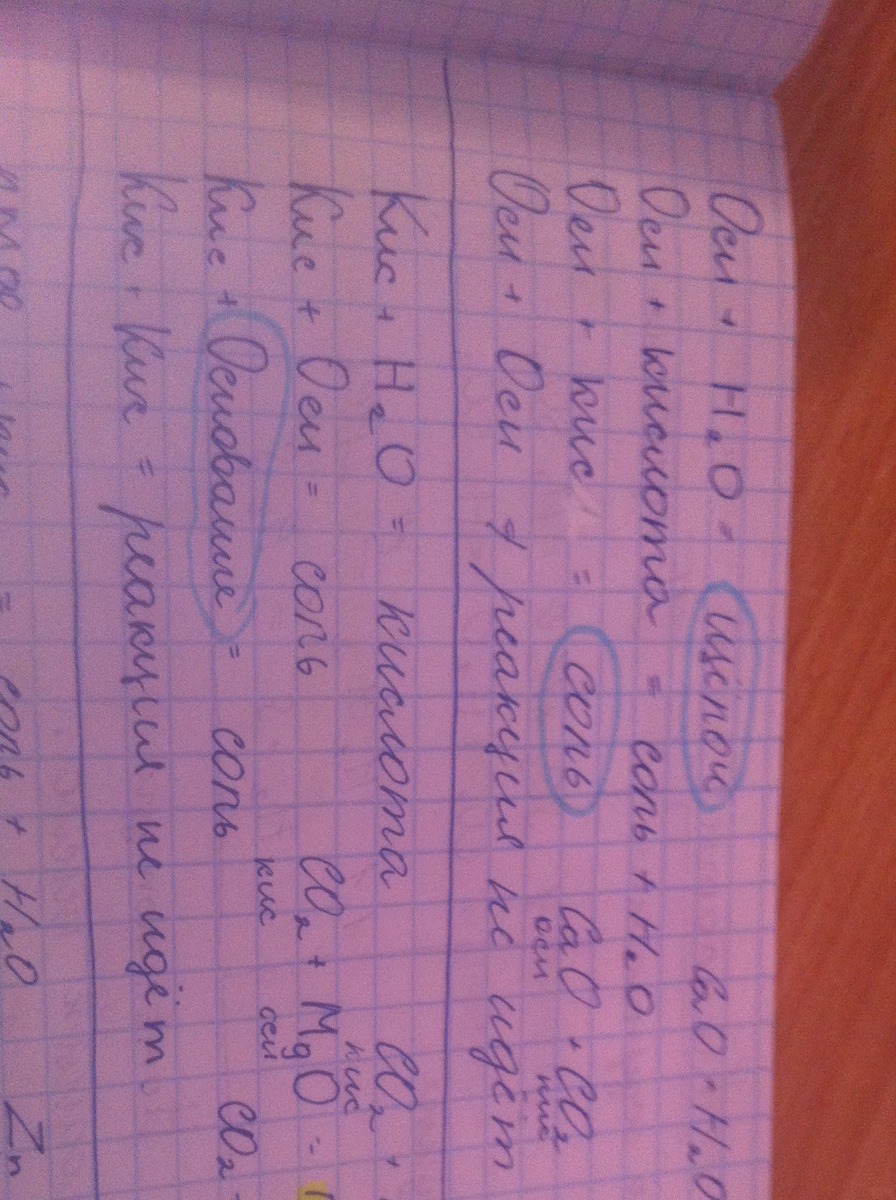 Осн + H₂O = щёлоч CaO + H₂O
Осн + кислота = соль + H₂O
Осн + кис = соль CaO + CO₂
осн кис
Осн + Осн ≠ реакция не идёт
Кис + H₂O = кислота CO₂ +
кис
Кис + Осн = соль CO₂ + MgO =
кис осн
Кис + Основание = соль CO₂
Кис + Кис = реакция не идёт.
= соль + H₂O Zn